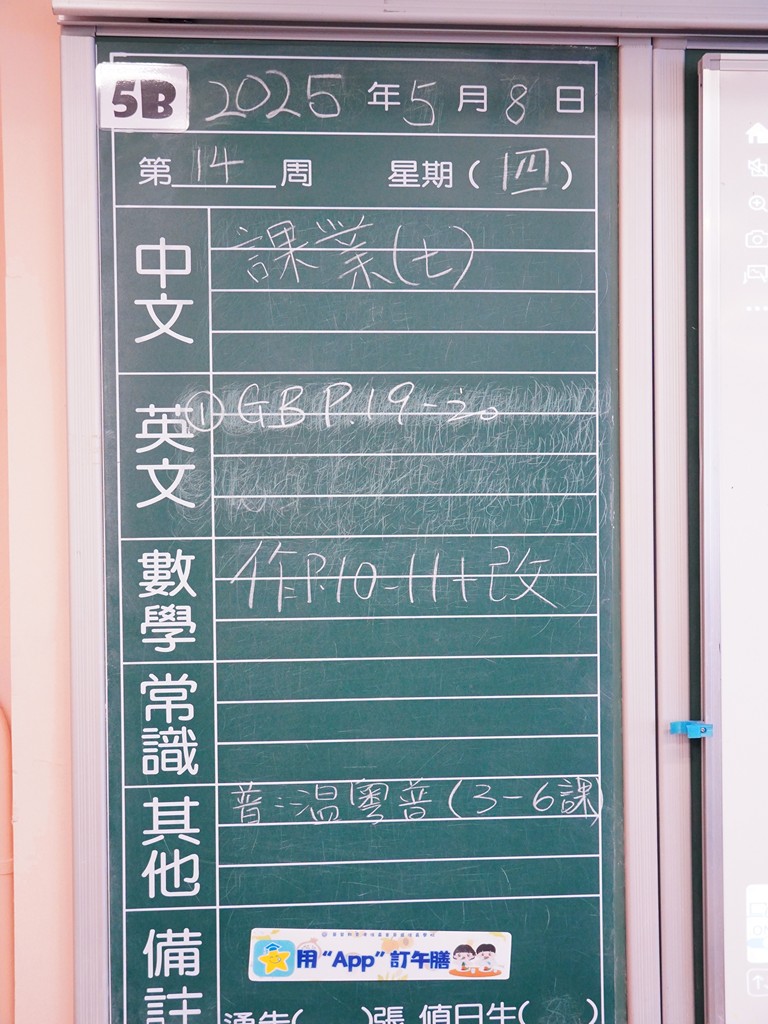 5B 2025年5月8日
第14周 星期(四)
中文 課業(七)
英文 ①GB P.19-20
數學 作P.10-11+改
常識
其他 普:溫粵普(3-6課)
備註
用“App”訂午膳
通告( )張 值日生( )